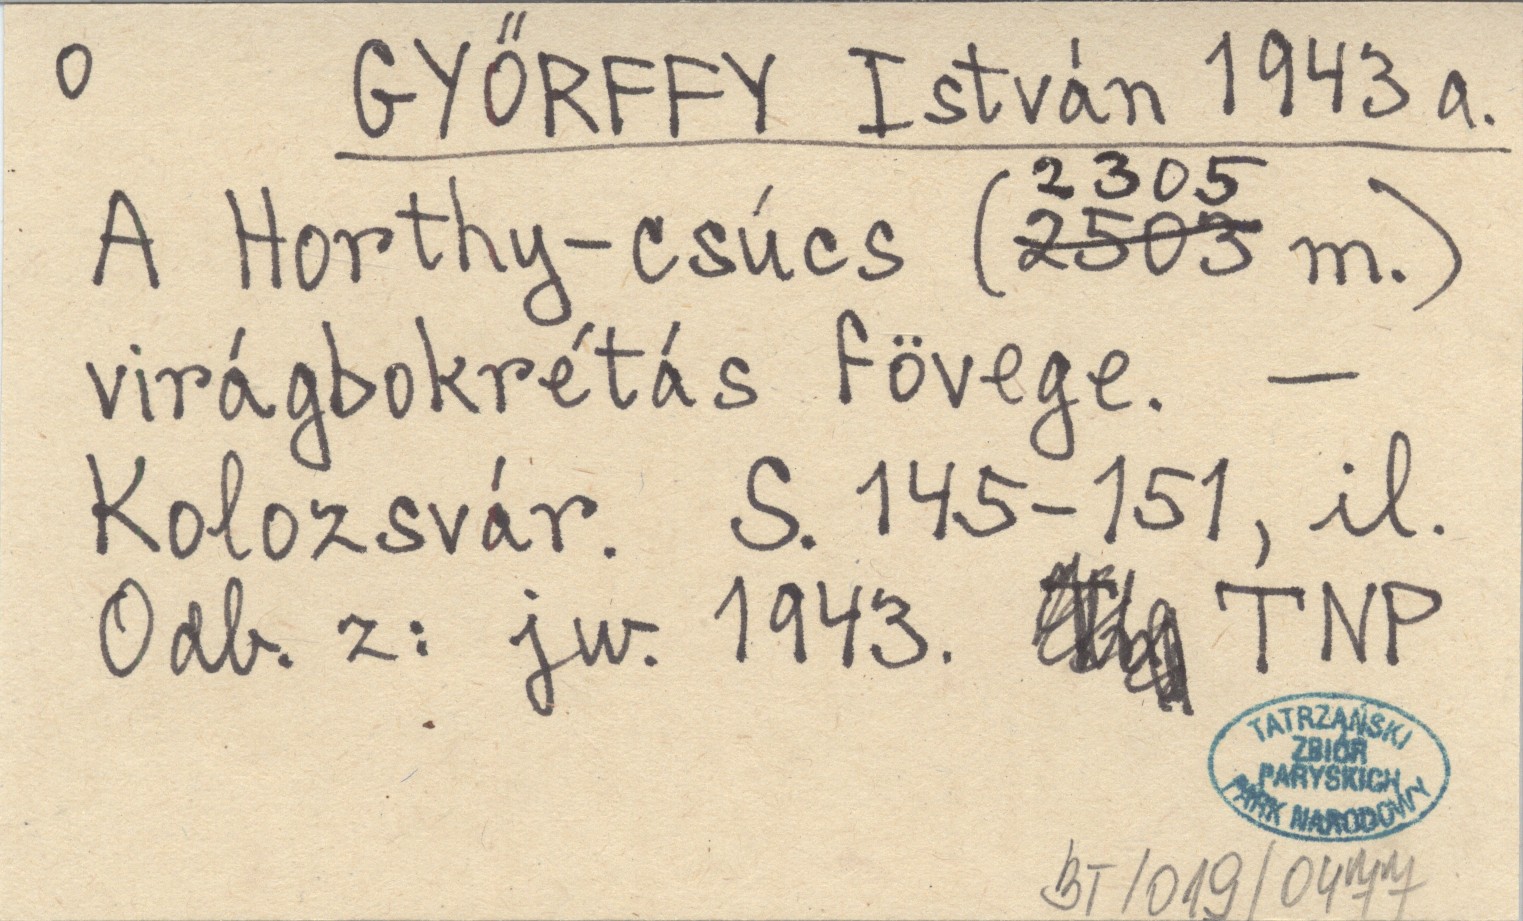 o GYŐRFFY István 1943 a.
2305
A Horthy-csúcs (2503 m.)
virágbokrétás fövege. —
Kolozsvár. S. 145-151, il.
Odb. z: jw. 1943. TNP
TATRZAŃSKI
ZBIÓR
PARYSKICH
PARK NARODOWY
BT/019/0477